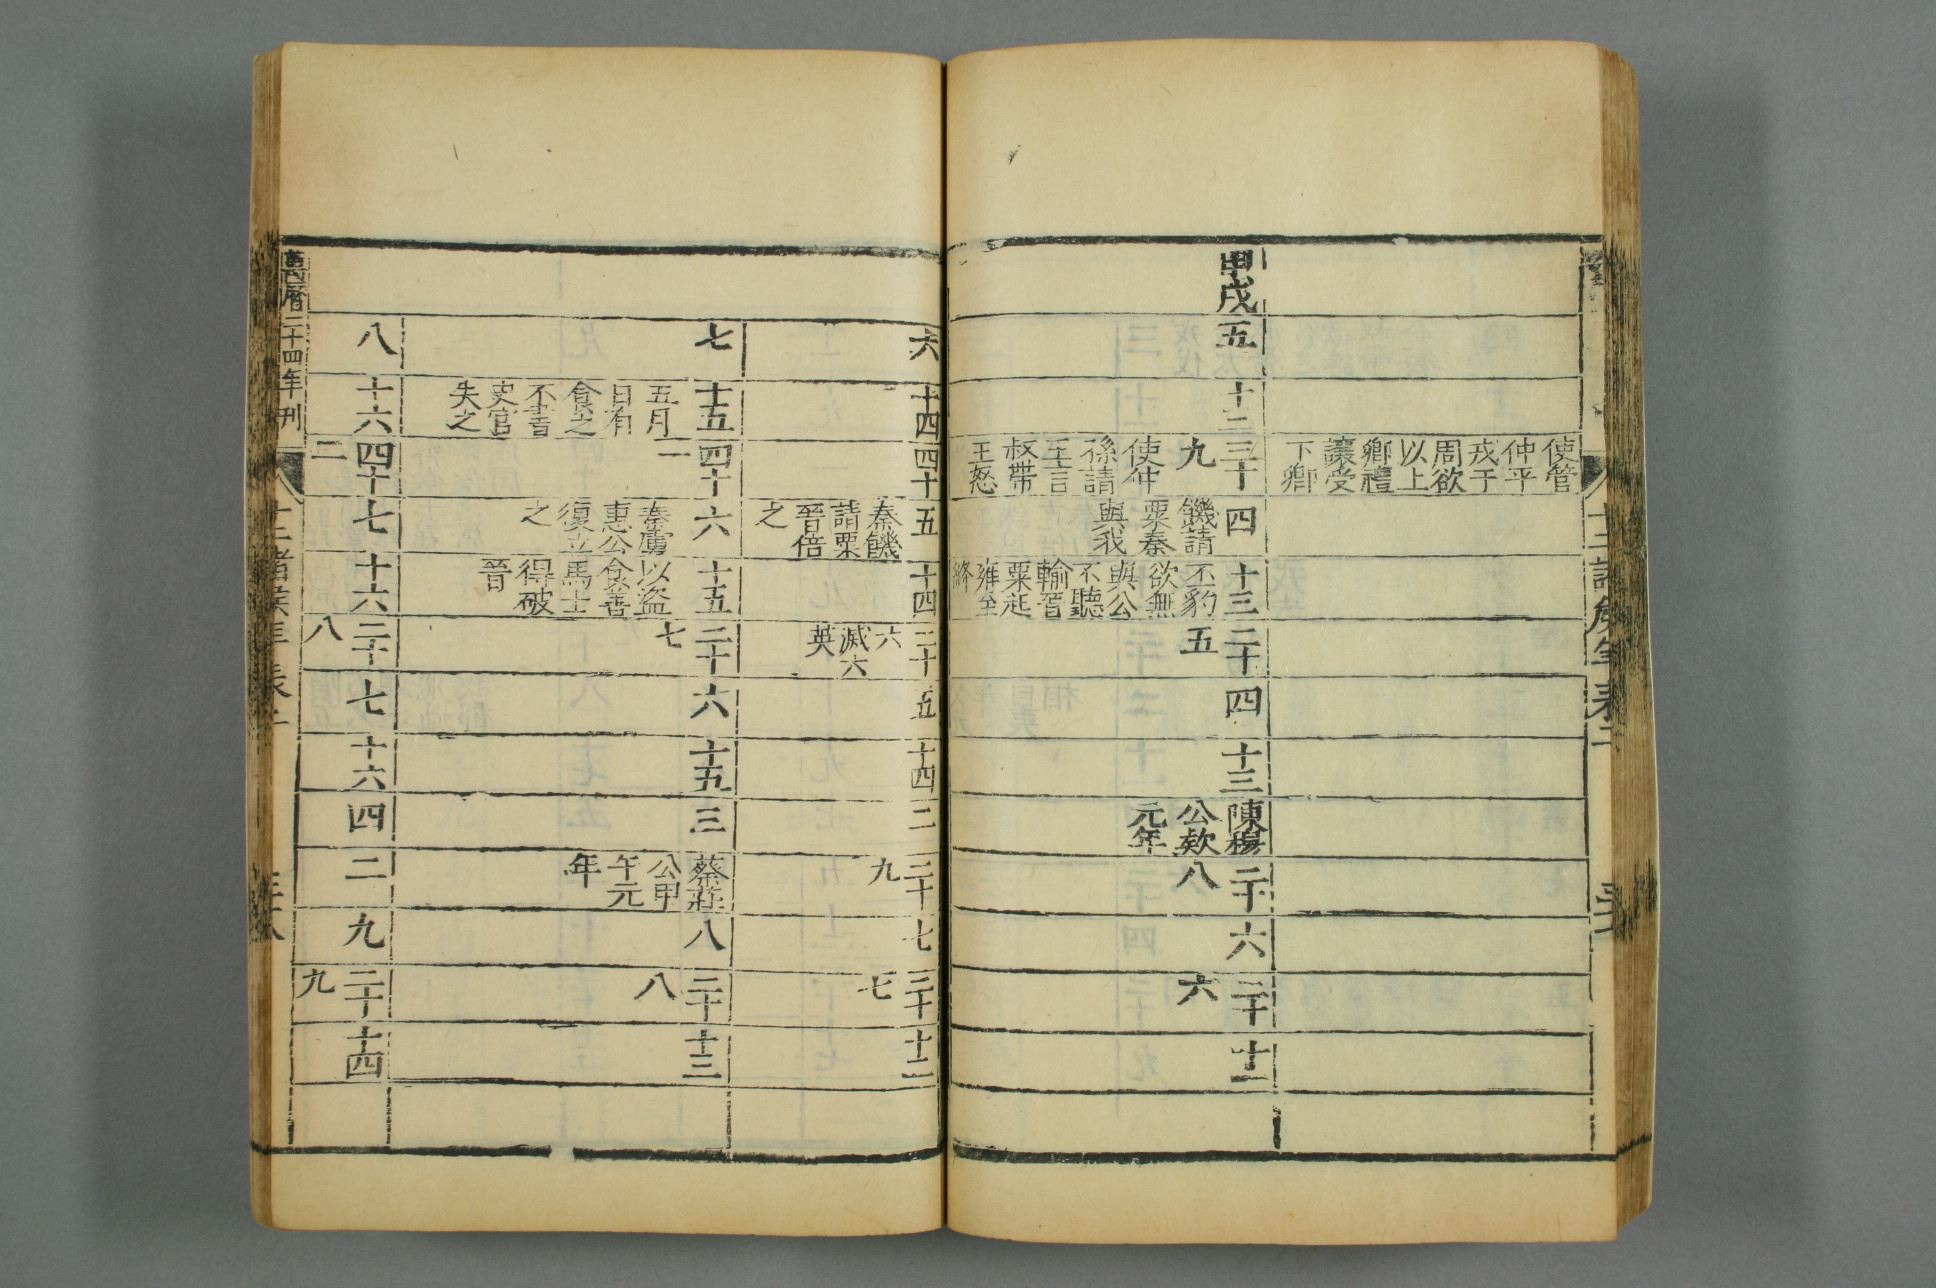 使管
仲平
戎于
周欲
以上
卿禮
讓受
下卿
甲戌
五
十二
三十
九
使仲
孫請
王言
叔帶
王怒
四
饑請
粟秦
與我
十三
丕豹
欲無
與公
不聽
輸晉
粟起
雍至
絳
二十
五
四
十三
陳穆
公款
元年
二十
八
六
二十
六
十二
六
十四
四十
五
秦饑
請粟
晉倍
之
十四
二十
六
滅六
英
五
十四
二
二十
九
七
二十
七
十二
七
十五
五月
日有
食之
不書
史官
失之
四十
一
六
秦虜
惠公
復立
之
十五
以盜
食善
馬士
得破
晉
二十
七
六
十五
三
蔡莊
公甲
午元
年
八
二十
八
十三
八
十六
四十
二
七
十六
二十
八
七
十六
四
二
九
二十
九
十四
萬曆二十四年刊
十二諸侯年表二
三十八